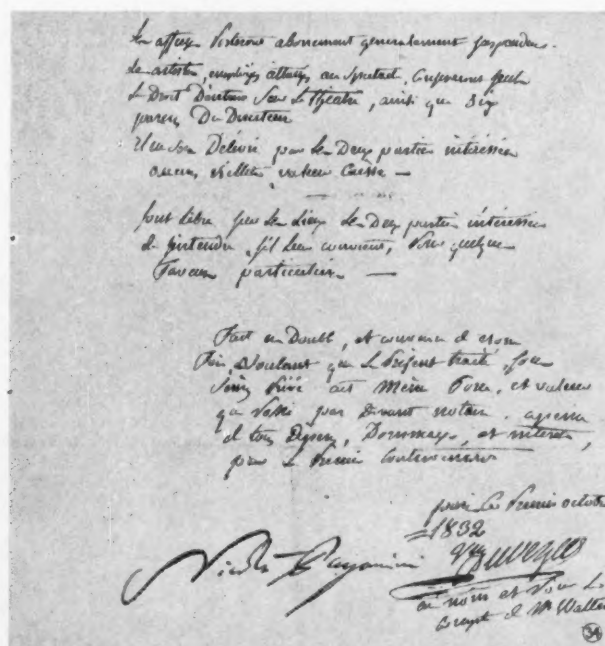 Les affiches porterons abonnement generalement suspendu.
Les artistes, employés attachés au spectacle, conserverons seuls
le Droit D'entrée sur le Théatre, ainsi que Dix
Du Directeur
Il ne sera Délivré par les Deux parties intéressées
aucuns billets valeur Caisse —
les Deux parties intéressées
de s'entendre, s'il leur convient, pour quelque
faveur particulière —
Fait en Double, et convenu de bonne
foi, voulant que le présent traité, sous
seing privé ait même force, et valeur
que passé par devant notaire. a peine
de tous Dépens, Dommages, et interets,
pour le premier contrevenant
paris le premier octobre
1832
Nicolò Paganini
au nom et pour le
compte de Mr
34